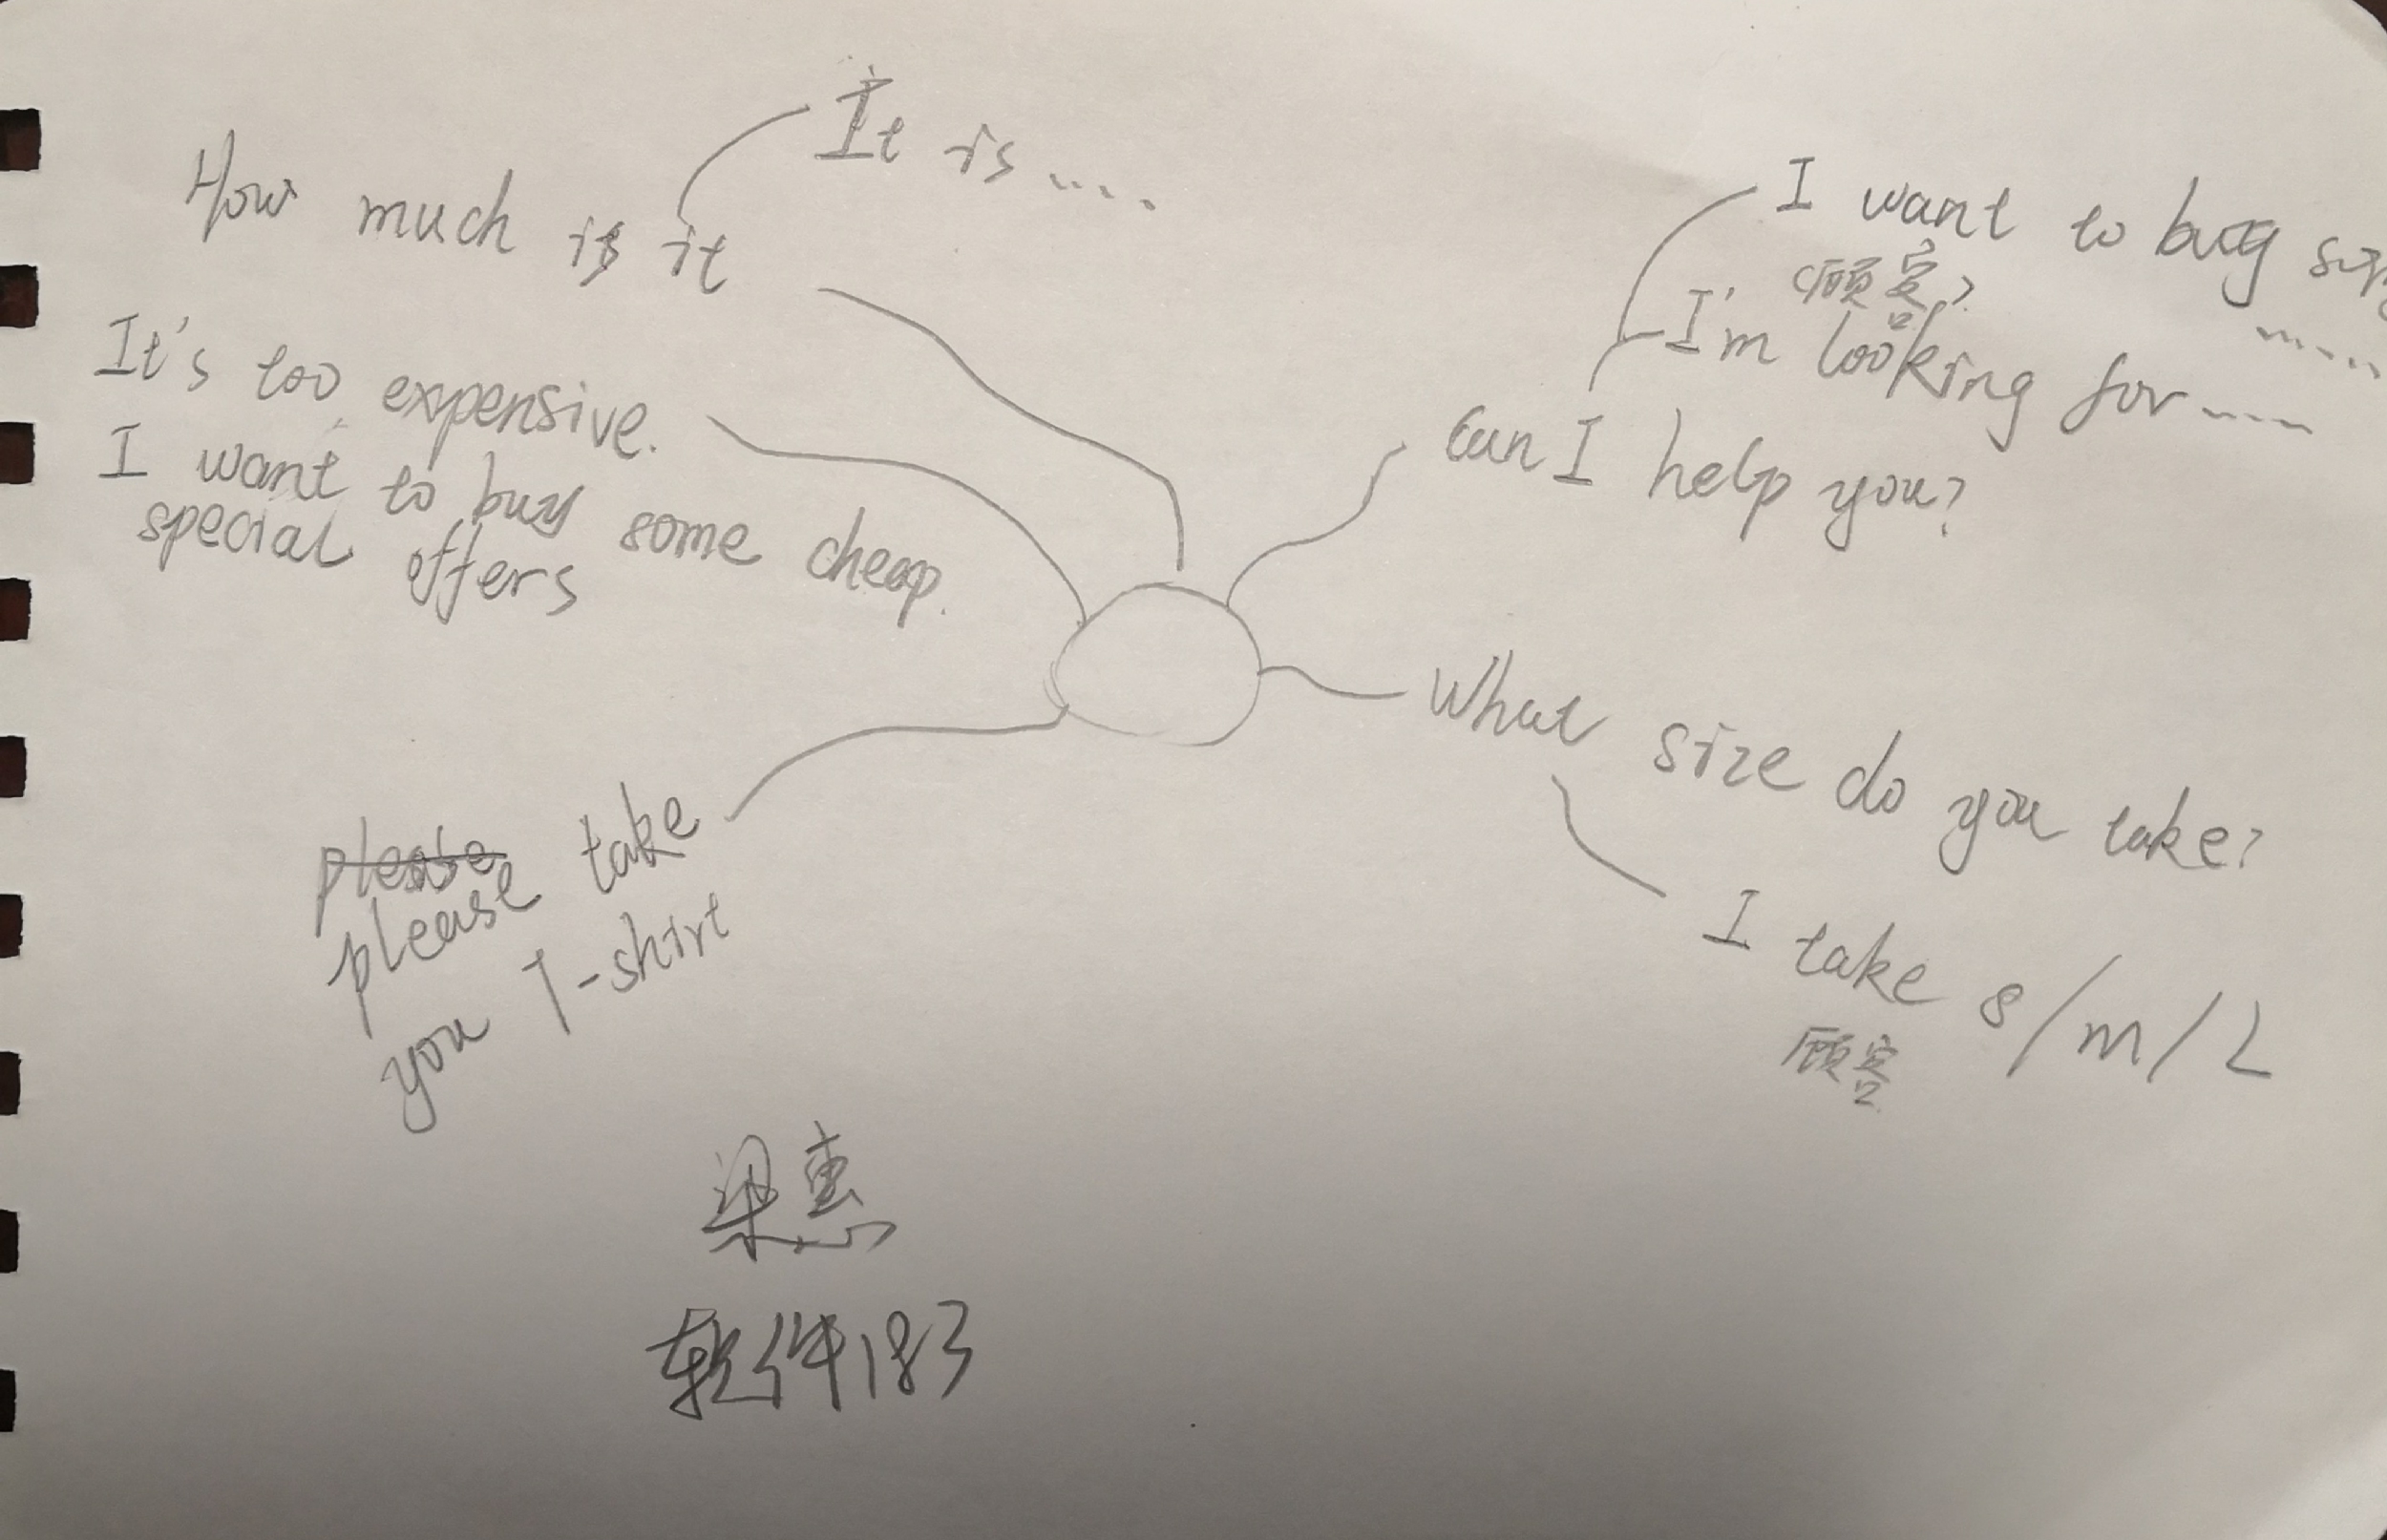 It is ....
How much is it
It's too expensive.
I want to buy some cheap.
special offers
please take
you T-shirt
I want to buy
(顾客)
I'm looking for ....
can I help you?
What size do you take?
I take s/m/L
顾客
梁惠
软件183